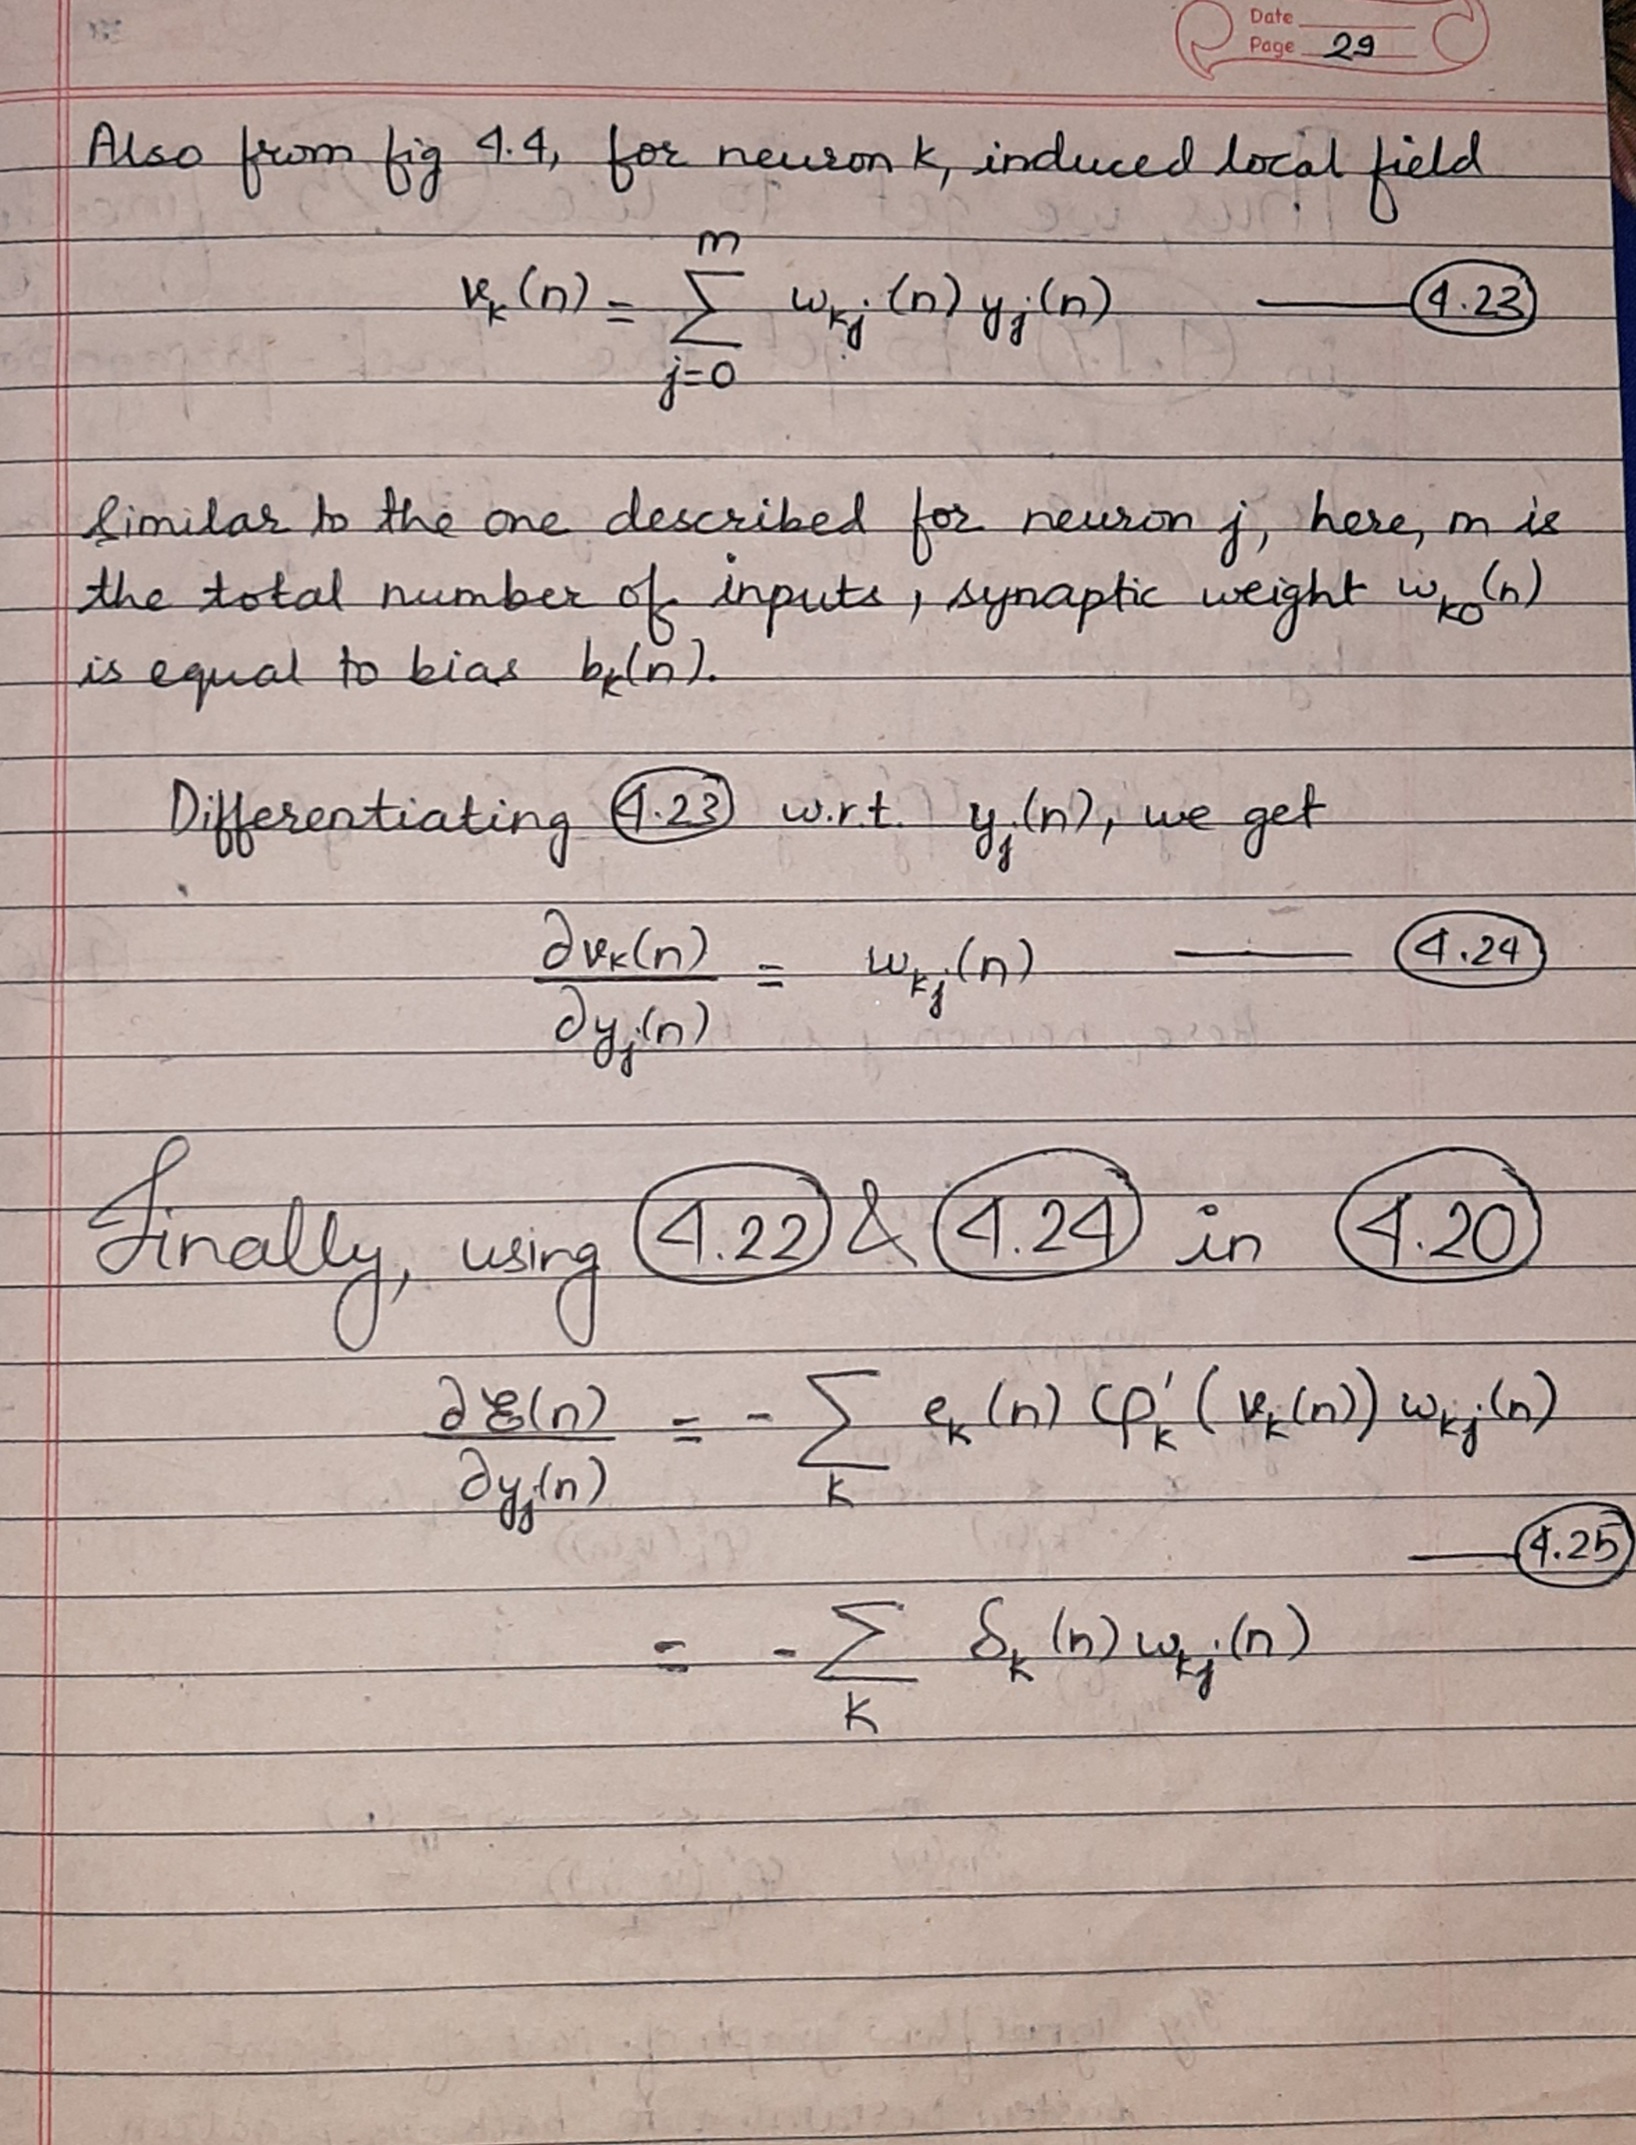 Date
Page 29
Also from fig 4.4, for neuron k, induced local field
v_k(n) = Σ_{j=0}^{m} w_kj(n) y_j(n) —— (4.23)
Similar to the one described for neuron j, here, m is
the total number of inputs, synaptic weight w_k0(n)
is equal to bias b_k(n).
Differentiating (4.23) w.r.t. y_j(n), we get
∂v_k(n)/∂y_j(n) = w_kj(n) —— (4.24)
Finally, using (4.22) & (4.24) in (4.20)
∂ℰ(n)/∂y_j(n) = - Σ_k e_k(n) φ'_k(v_k(n)) w_kj(n)
—— (4.25)
= - Σ_k δ_k(n) w_kj(n)